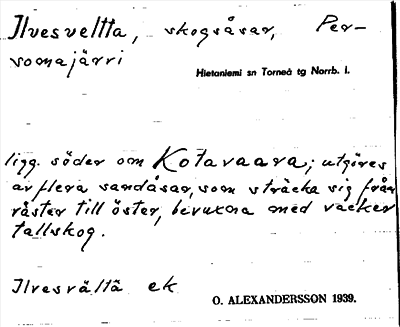 Ilvesveltta, skogsåsar, Per-
somajärri
Hietaniemi sn Torneå tg Norrb. l.
ligg. söder om Kotavaara; utgöres
av flera sandåsar, som sträcka sig från
väster till öster, bevuxna med vacker
tallskog.
Ilvesvältä ek
O. ALEXANDERSSON 1939.